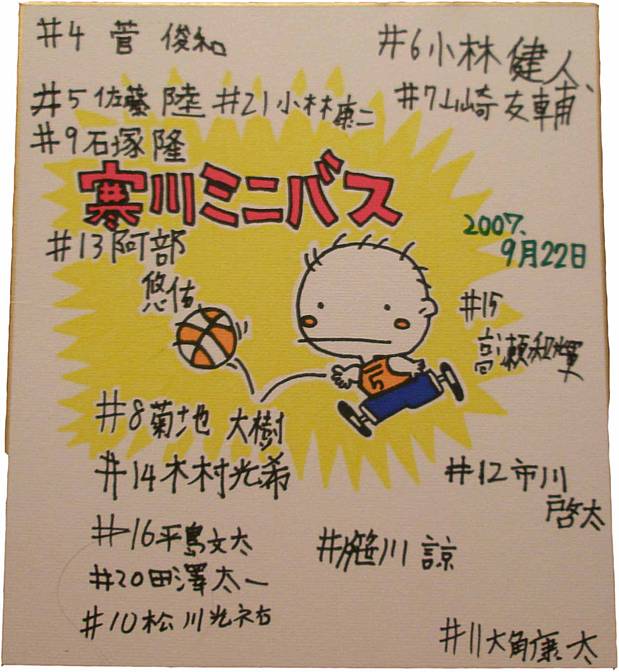 #4 菅 俊和
#6 小林 健人
#5 佐藤 陸 #21 小林 康二
#7 山崎 友輔
#9 石塚 隆
寒川ミニバス
2007.
9月22日
#13 阿部
悠佑
#15
高瀬和輝
5
#8 菊地 大樹
#14 木村光希
#12 市川
啓太
#16 平島文太
笹川 諒
#20 田澤太一
#10 松川光祐
#11 大角康太